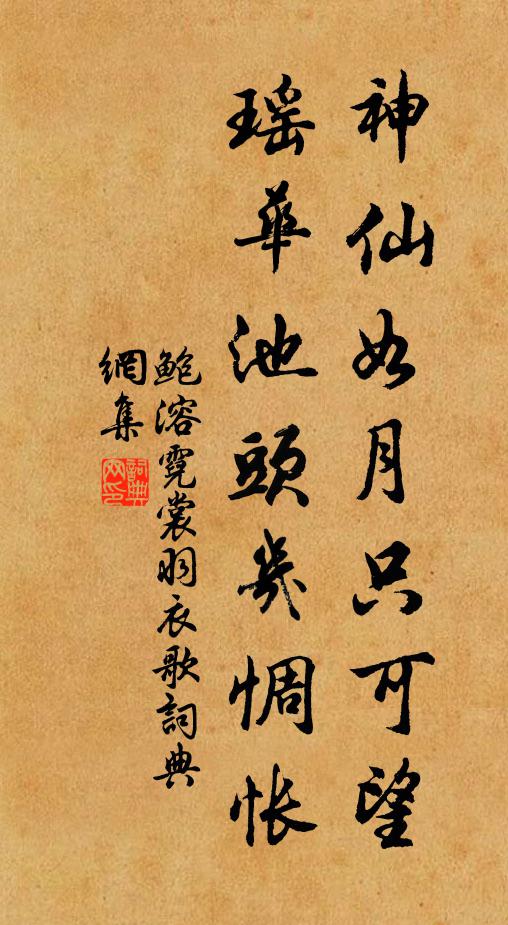 神仙如月只可望
瑶華池頭幾惆悵
鮑溶霓裳羽衣歌詞典
網集
詞典
网印